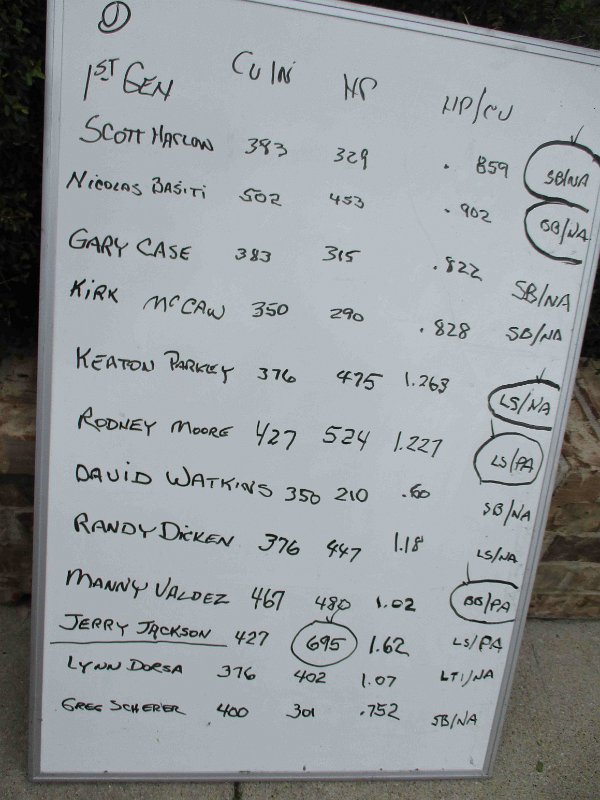 1
1ST GEN CU IN HP HP/CU
SCOTT HARLOW 383 329 .859 SB/NA
NICOLAS BASITI 502 453 .902 BB/NA
GARY CASE 383 315 .822 SB/NA
KIRK McCAW 350 290 .828 SB/NA
KEATON PARKEY 376 475 1.263 LS/NA
RODNEY MOORE 427 524 1.227 LS/PA
DAVID WATKINS 350 210 .60 SB/NA
RANDY DICKEN 376 447 1.18 LS/NA
MANNY VALDEZ 467 480 1.02 BB/PA
JERRY JACKSON 427 695 1.62 LS/PA
LYNN DORSA 376 402 1.07 LT1/NA
GREG SCHERER 400 301 .752 SB/NA